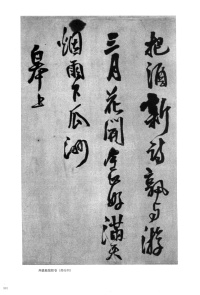 把酒新詩孰与游
三月花開 好滿天
烟雨下瓜洲
皋上